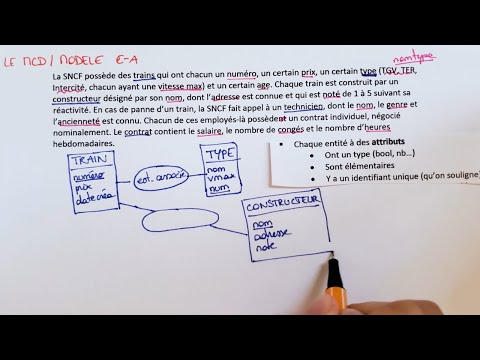 LE MCD / MODELE E-A
nomtype
La SNCF possède des trains qui ont chacun un numéro, un certain prix, un certain type (TGV, TER,
Intercité, chacun ayant une vitesse max) et un certain age. Chaque train est construit par un
constructeur désigné par son nom, dont l'adresse est connue et qui est noté de 1 à 5 suivant sa
réactivité. En cas de panne d'un train, la SNCF fait appel à un technicien, dont le nom, le genre et
l'ancienneté est connu. Chacun de ces employés-là possèdent un contrat individuel, négocié
nominalement. Le contrat contient le salaire, le nombre de congés et le nombre d'heures
hebdomadaires.
• Chaque entité à des attributs
• Ont un type (bool, nb...)
• Sont élémentaires
• Y a un identifiant unique (qu'on souligne)
TRAIN
numéro
prix
date créa
est associé
TYPE
nom
vmax
num
CONSTRUCTEUR
nom
adresse
note